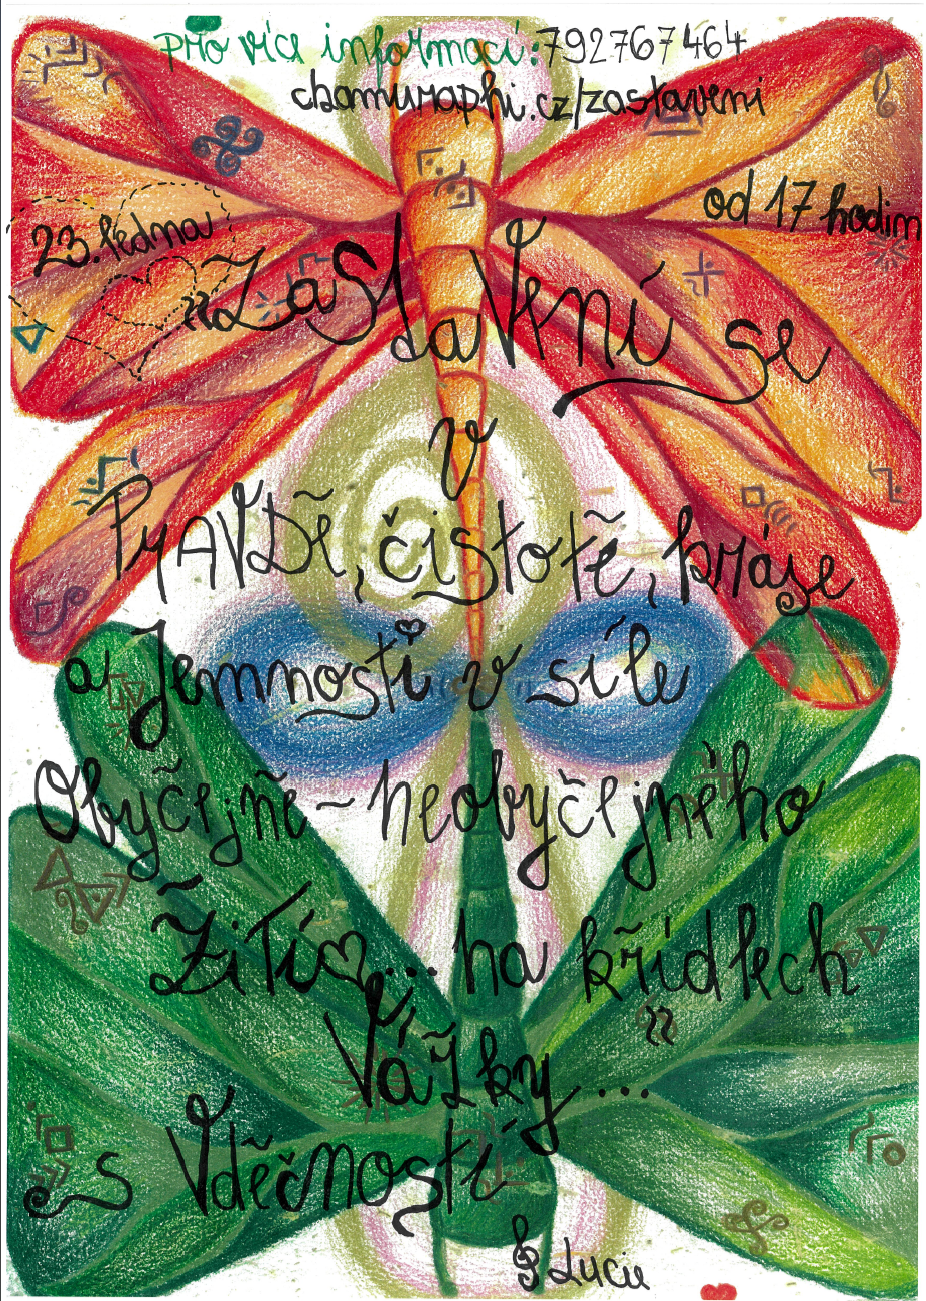 pro více informací: 792767464
chamuraphi.cz/zastaveni
od 17 hodin
23. ledna
"Zastavení se
v
PrAVDě, čistotě, kráse
a Jemnosti v síle
Obyčejně-neobyčejného
Žití... na křídlech
Vážky..."
s Vděčností
Lucie